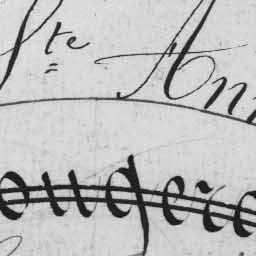 Ste An
ougere